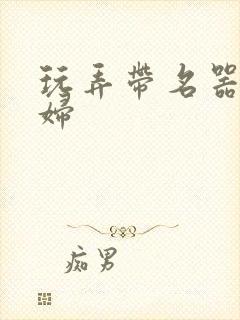 玩弄带名器
婦
痴男